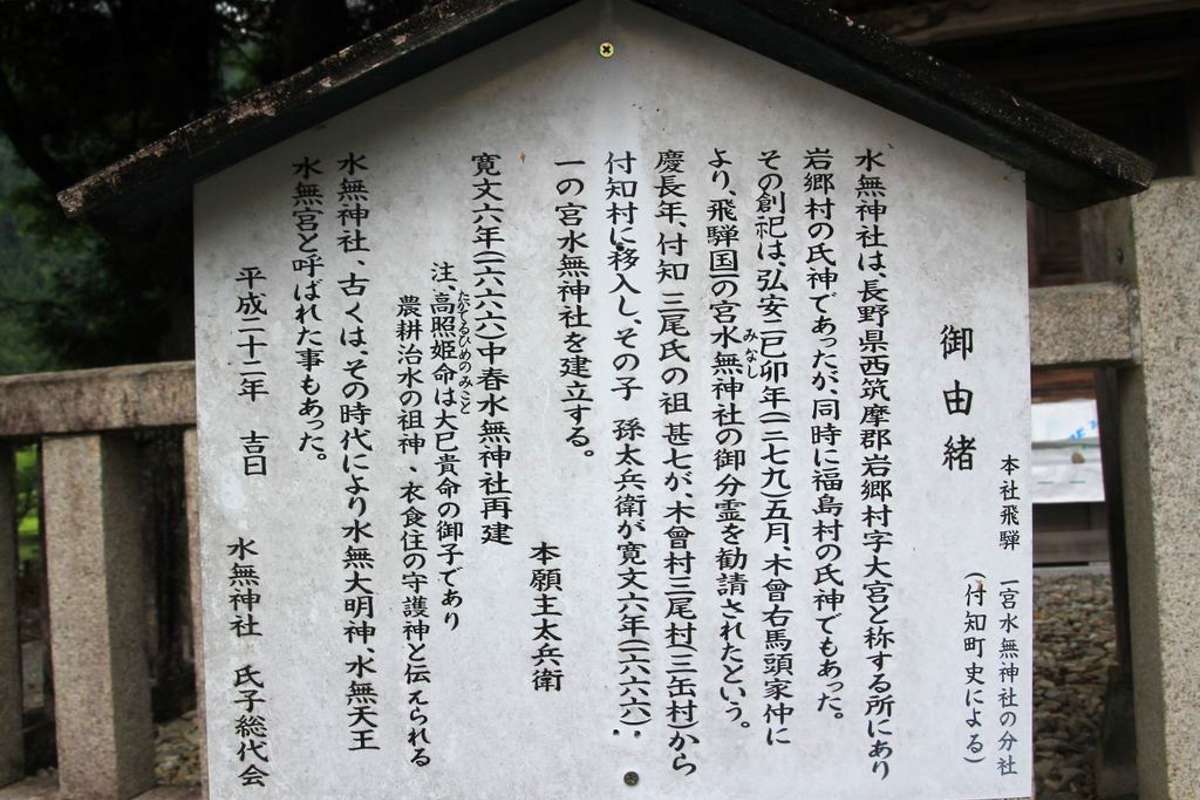 本社飛騨 一宮水無神社の分社
(付知町史による)
御由緒
水無神社は、長野県西筑摩郡岩郷村字大宮と称する所にあり
岩郷村の氏神であったが、同時に福島村の氏神でもあった。
その創祀は、弘安二己卯年(一二七九)五月、木曾右馬頭家仲に
より、飛騨国一の宮水無神社の御分霊を勧請されたという。
みなし
慶長年、付知 三尾氏の祖 甚七が、木曾村三尾村(三缶村)から
付知村に移入し、その子 孫太兵衛が寛文六年(一六六六)∴
一の宮水無神社を建立する。
本願主太兵衛
寛文六年(一六六六)中春水無神社再建
注、高照姫命は大巳貴命の御子であり
たかてるひめのみこと
農耕治水の祖神、衣食住の守護神と伝えられる
水無神社、古くは、その時代により水無大明神、水無天王
水無宮と呼ばれた事もあった。
平成二十二年 吉日
水無神社 氏子総代会